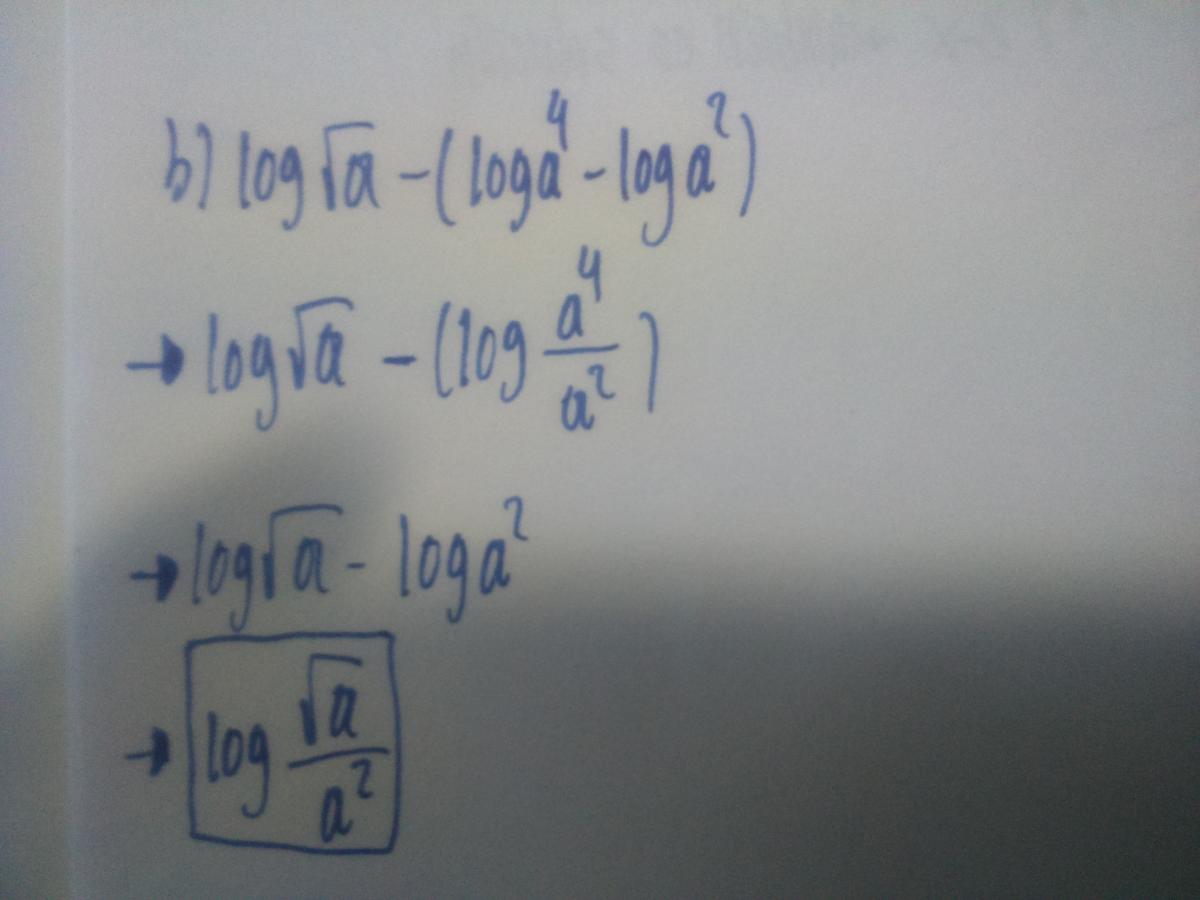 b) log √a - (log a⁴ - log a²)
→ log √a - (log a⁴/a²)
→ log √a - log a²
→ log √a/a²